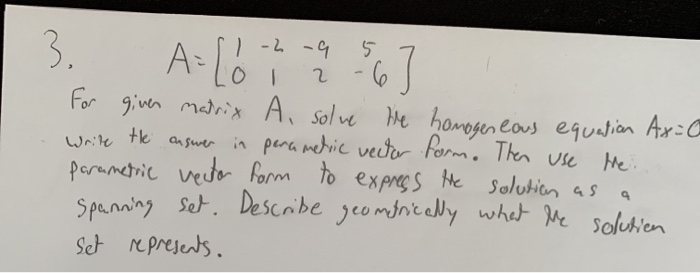 3. A = [ 1 -2 -9 5
0 1 2 -6 ]
For given matrix A, solve the homogeneous equation Ax=0
Write the answer in parametric vector form. Then use the
parametric vector form to express the solution as a
spanning set. Describe geometrically what the solution
set represents.